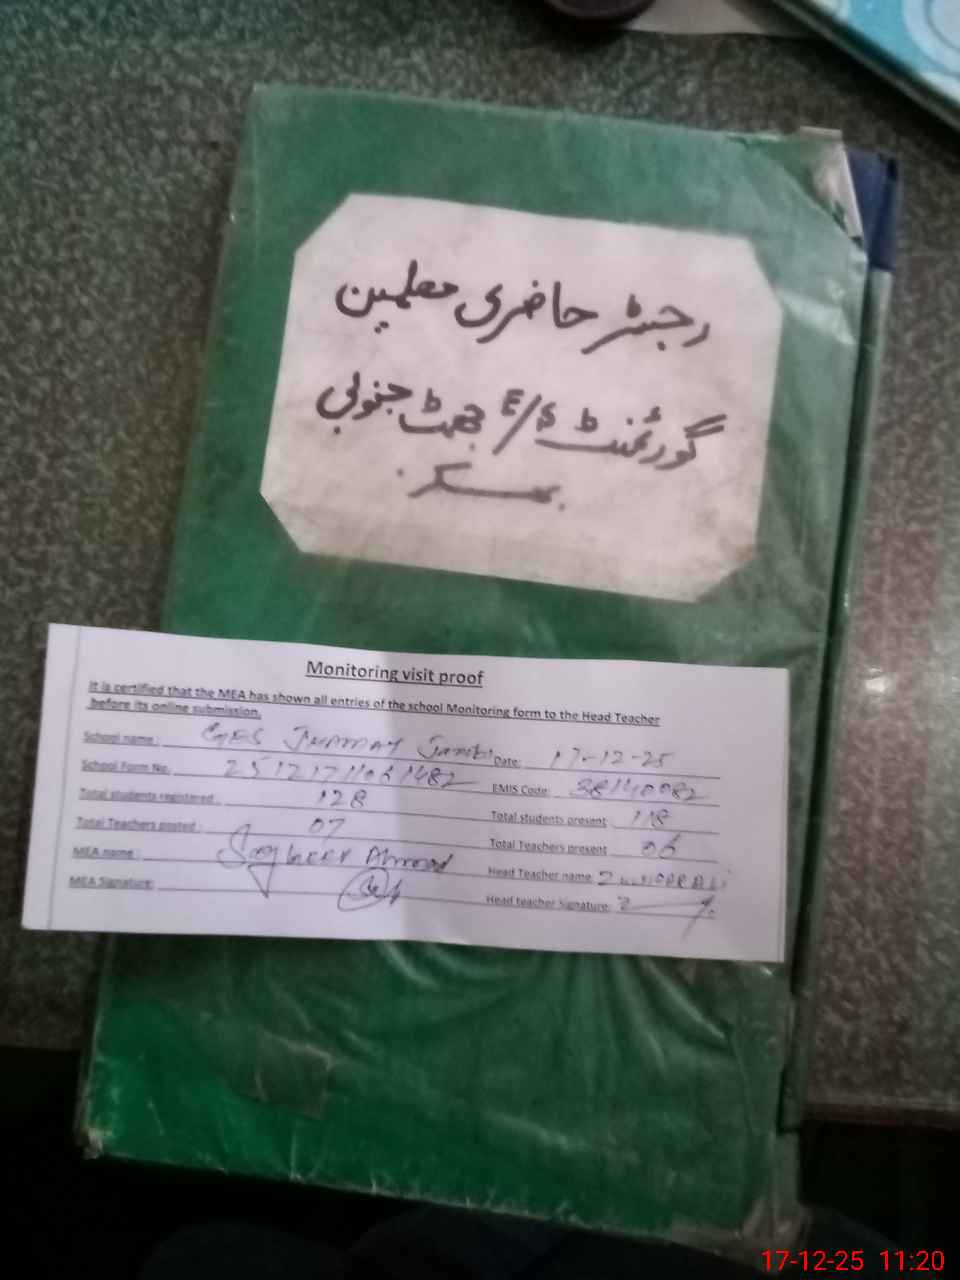 رجسٹر حاضری معلمین
گورنمنٹ E/S جھمٹ جنوبی
بھکر
Monitoring visit proof
It is certified that the MEA has shown all entries of the school Monitoring form to the Head Teacher
before its online submission.
School name: GES Jhammat Janubi Date: 17-12-25
School Form No. EMIS Code: 38140082
Total students registered: 128 Total students present 118
Total Teachers posted: 07 Total Teachers present 06
MEA name: Sagheer Ahmad Head Teacher name: ALi
MEA Signature: Head teacher Signature:
17-12-25 11:20